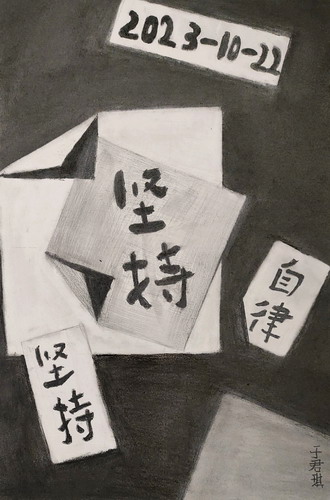 2023-10-22
坚
持
自
律
坚
持
于君琪